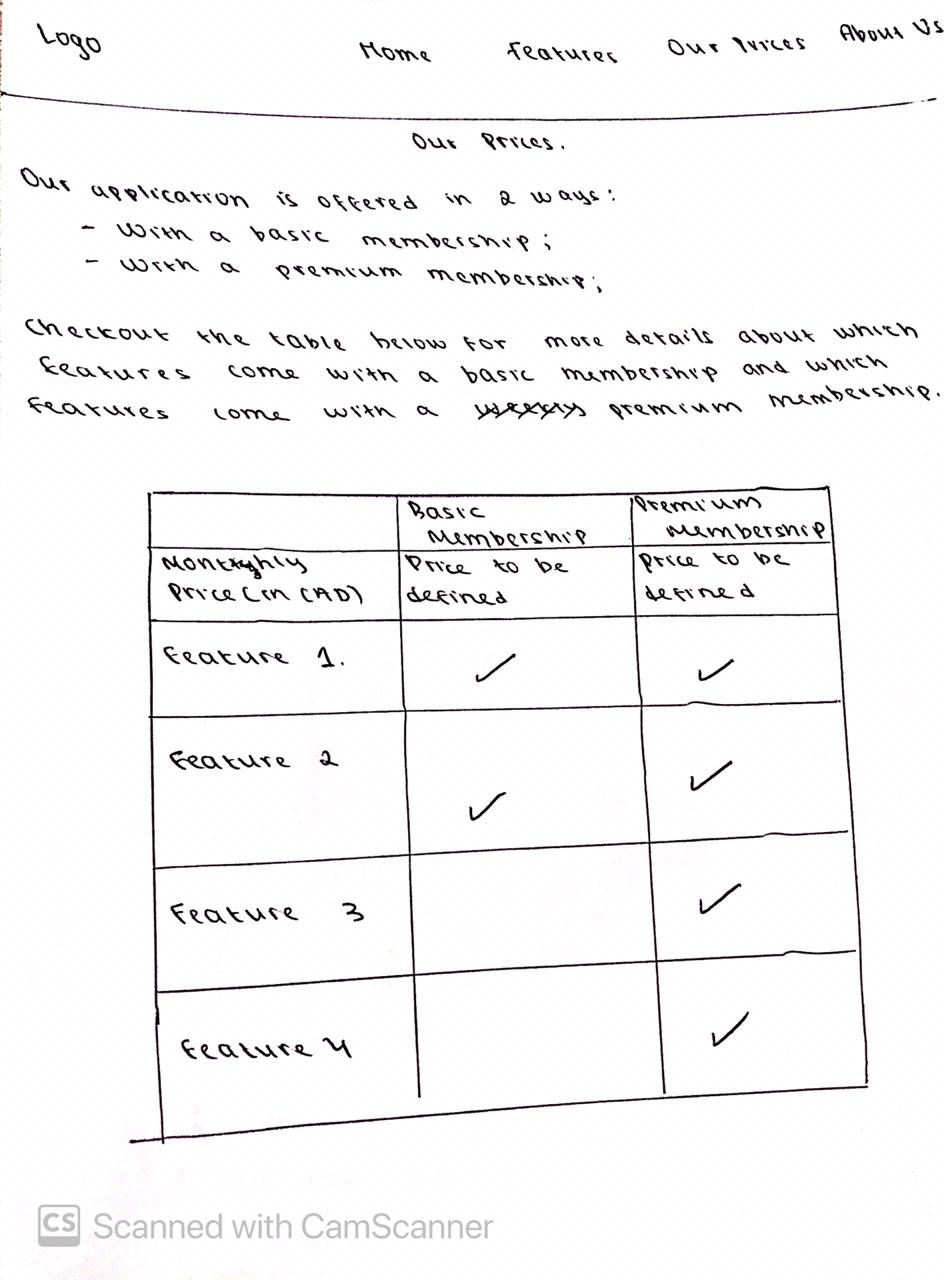 Logo Home Features Our Prices About Us
Our Prices.
Our application is offered in 2 ways:
- With a basic membership;
- With a premium membership;
Checkout the table below for more details about which
features come with a basic membership and which
features come with a premium membership.
Basic Membership Premium Membership
Monthly Price (in CAD) Price to be defined Price to be defined
Feature 1. ✓ ✓
Feature 2 ✓ ✓
Feature 3 ✓
Feature 4 ✓
CS Scanned with CamScanner